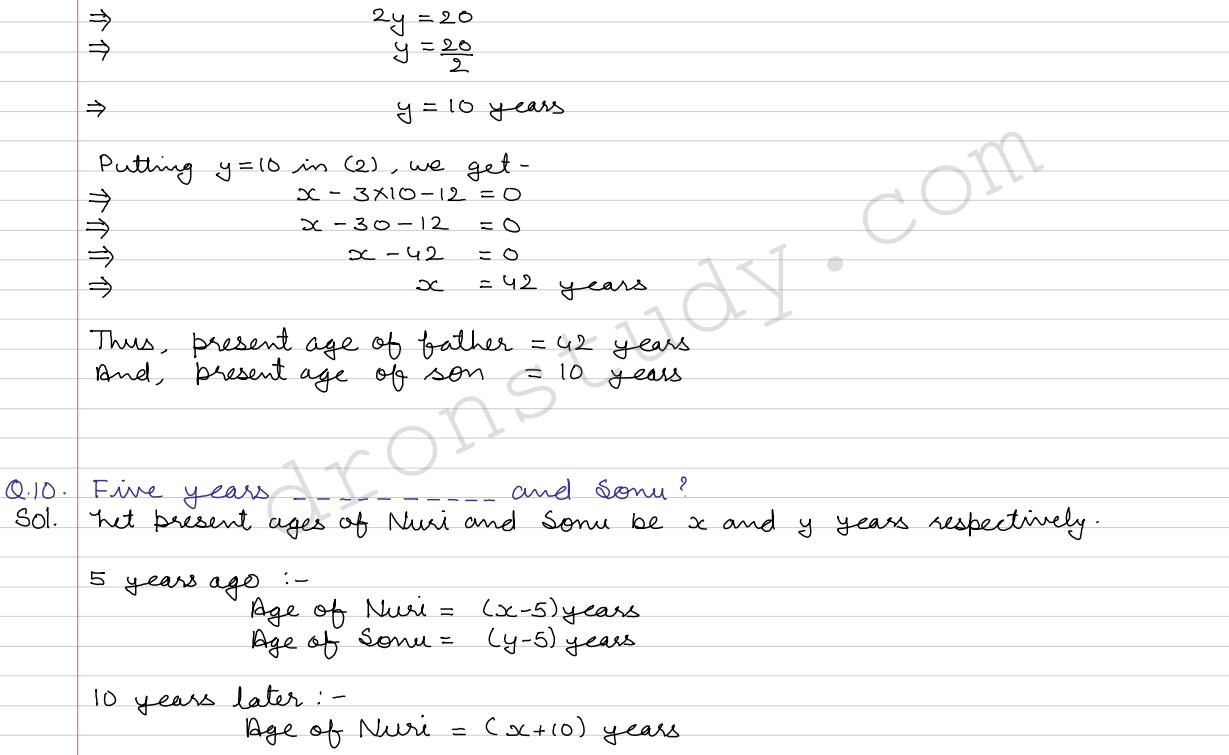 ⇒ 2y = 20
⇒ y = 20/2
⇒ y = 10 years
Putting y=10 in (2), we get -
⇒ x - 3×10-12 = 0
⇒ x - 30 - 12 = 0
⇒ x - 42 = 0
⇒ x = 42 years
Thus, present age of father = 42 years
And, present age of son = 10 years
Q.10. Five years __________ and Sonu?
Sol. Let present ages of Nuri and Sonu be x and y years respectively.
5 years ago :-
Age of Nuri = (x-5) years
Age of Sonu = (y-5) years
10 years later :-
Age of Nuri = (x+10) years
dronstudy.com